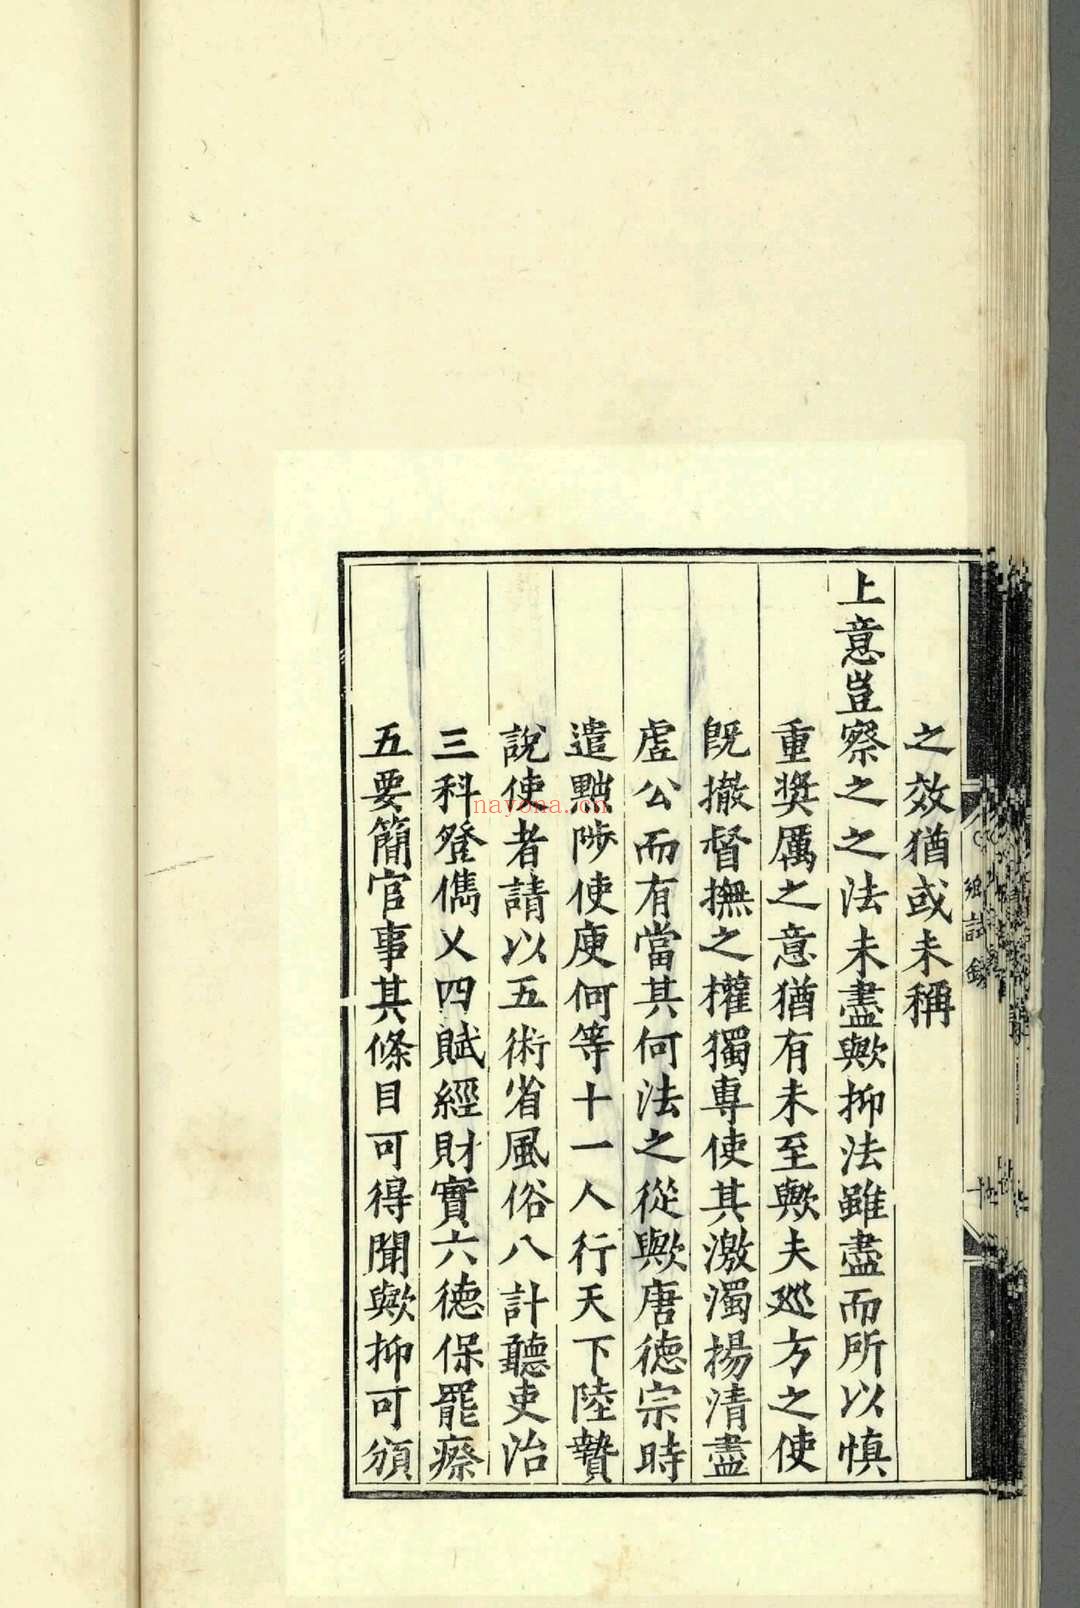 之效猶或未稱
上意豈察之之法未盡歟抑法雖盡而所以慎
重奨厲之意猶有未至歟夫廵方之使
既撤督撫之權獨專使其激濁揚清盡
虛公而有當其何法之從歟唐德宗時
遣黜陟使庾何等十一人行天下陸贄
說使者請以五術省風俗八計聽吏治
三科登儁乂四賦經財實六德保罷瘵
五要簡官事其條目可得聞歟抑可頒
鄉試錄
nayona.cn